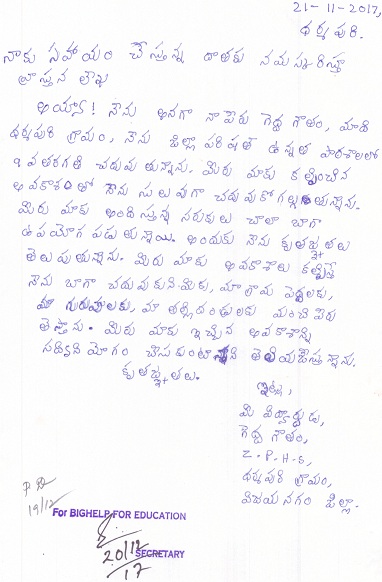 21-11-2017,
ధర్మపురి.
నాకు సహాయం చేస్తున్న దాతకు నమస్కరిస్తూ
వ్రాస్తున లేఖ
అయ్యా! నేను అనగా నా పేరు గెద్ద గౌతం, మాది
ధర్మపురి గ్రామం, నేను జిల్లా పరిషత్ ఉన్నత పాఠశాలలో
తరగతి చదువుతున్నాను. మీరు మాకు కల్పించిన
అవకాశంతో నేను సులువుగా చదువుకోగల్గుతున్నాను.
మీరు మాకు అందిస్తున్న సరుకులు చాలా బాగా
ఉపయోగ పడుతున్నాయి. అందుకు నేను కృతజ్ఞతలు
తెలుపుతున్నాను. మీరు మాకు అవకాశాలు కల్పిస్తే
నేను బాగా చదువుకుని మీకు, మా గ్రామ పెద్దలకు,
మా గురువులకు, మా తల్లిదండ్రులకు మంచి పేరు
తెస్తాను. మీరు మాకు ఇచ్చిన అవకాశాన్ని
సద్వినియోగం చేసుకుంటా తెలియజేస్తున్నాను.
కృతజ్ఞతలు.
ఇట్లు,
మీ విద్యార్థుడు,
గెద్ద గౌతం,
Z.P.H.S,
ధర్మపురి గ్రామం,
విజయనగం జిల్లా.
19/12
For BIGHELP FOR EDUCATION
20/12/17
SECRETARY